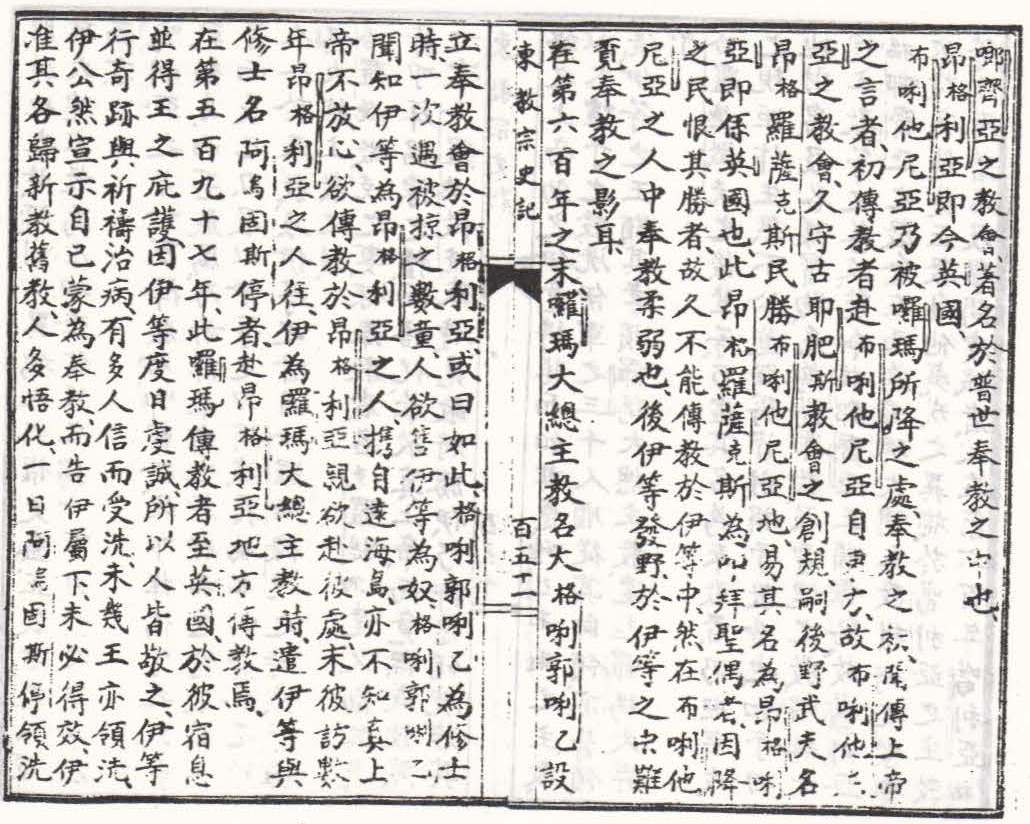 啣齊亞之教會、著名於普世奉教之中也、
昂格利亞即今英國
布唎他尼亞乃被囉瑪所降之處、奉教之初聞傳上帝
之言者、初傳教者赴布唎他尼亞自東方、故布唎他尼
亞之教會、久守古耶肥斯教會之創規、嗣後野武夫名
昂格羅薩克斯民勝布唎他尼亞地、易其名為昂格唎
亞即係英國也、此昂格羅薩克斯為叩拜聖偶者、因降
之民恨其勝者、故久不能傳教於伊等中、然在布唎他
尼亞之人中奉教柔弱也、後伊等發野、於伊等之中難
覓奉教之影耳、
在第六百年之末、囉瑪大總主教名大格唎郭唎乙設
東教宗史記
百五十一
立奉教會於昂格利亞、或曰如此、格唎郭唎乙為修士
時、一次遇被掠之數童、人欲售伊等為奴、格唎郭唎乙
聞知伊等為昂格利亞之人、攜自遠海島亦不知真上
帝不放心、欲傳教於昂格利亞親欲赴彼處未彼訪數
年昂格利亞之人往、伊為囉瑪大總主教時、遣伊等與
修士名阿烏固斯停者、赴昂格利亞地方、傳教焉、
在第五百九十七年、此羅瑪傳教者至英國、於彼宿息
並得王之庇護、因伊等度日虔誠、所以人皆敬之、伊等
行奇跡、與祈禱治病、有多人信而受洗、未幾王亦領洗、
伊公然宣示自己蒙為奉教、而告伊屬下、未必得效、伊
准其各歸新教舊教人多悟化、一日阿烏固斯停領洗